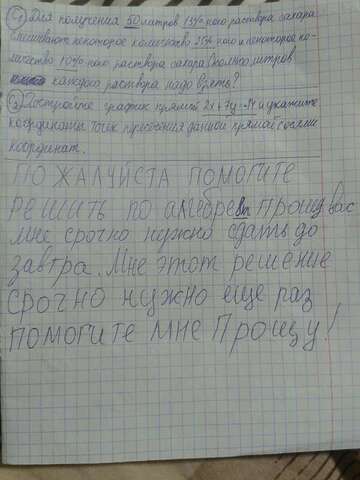 ① Для получения 60 литров 15%-ного раствора сахара
смешивают некоторое количество 25%-ного и некоторое ко-
личество 10%-ного раствора сахара. Сколько литров
каждого раствора надо взять?
② Постройте график прямой 2x+7y=-14 и укажите
координаты точек пересечения данной прямой с осями
координат.
ПОЖАЛУЙСТА ПОМОГИТЕ
РЕШИТЬ ПО АЛГЕБРЕ прошу вас
мне срочно нужно сдать до
завтра. Мне этот решение
срочно нужно еще раз
помогите мне Прошу!